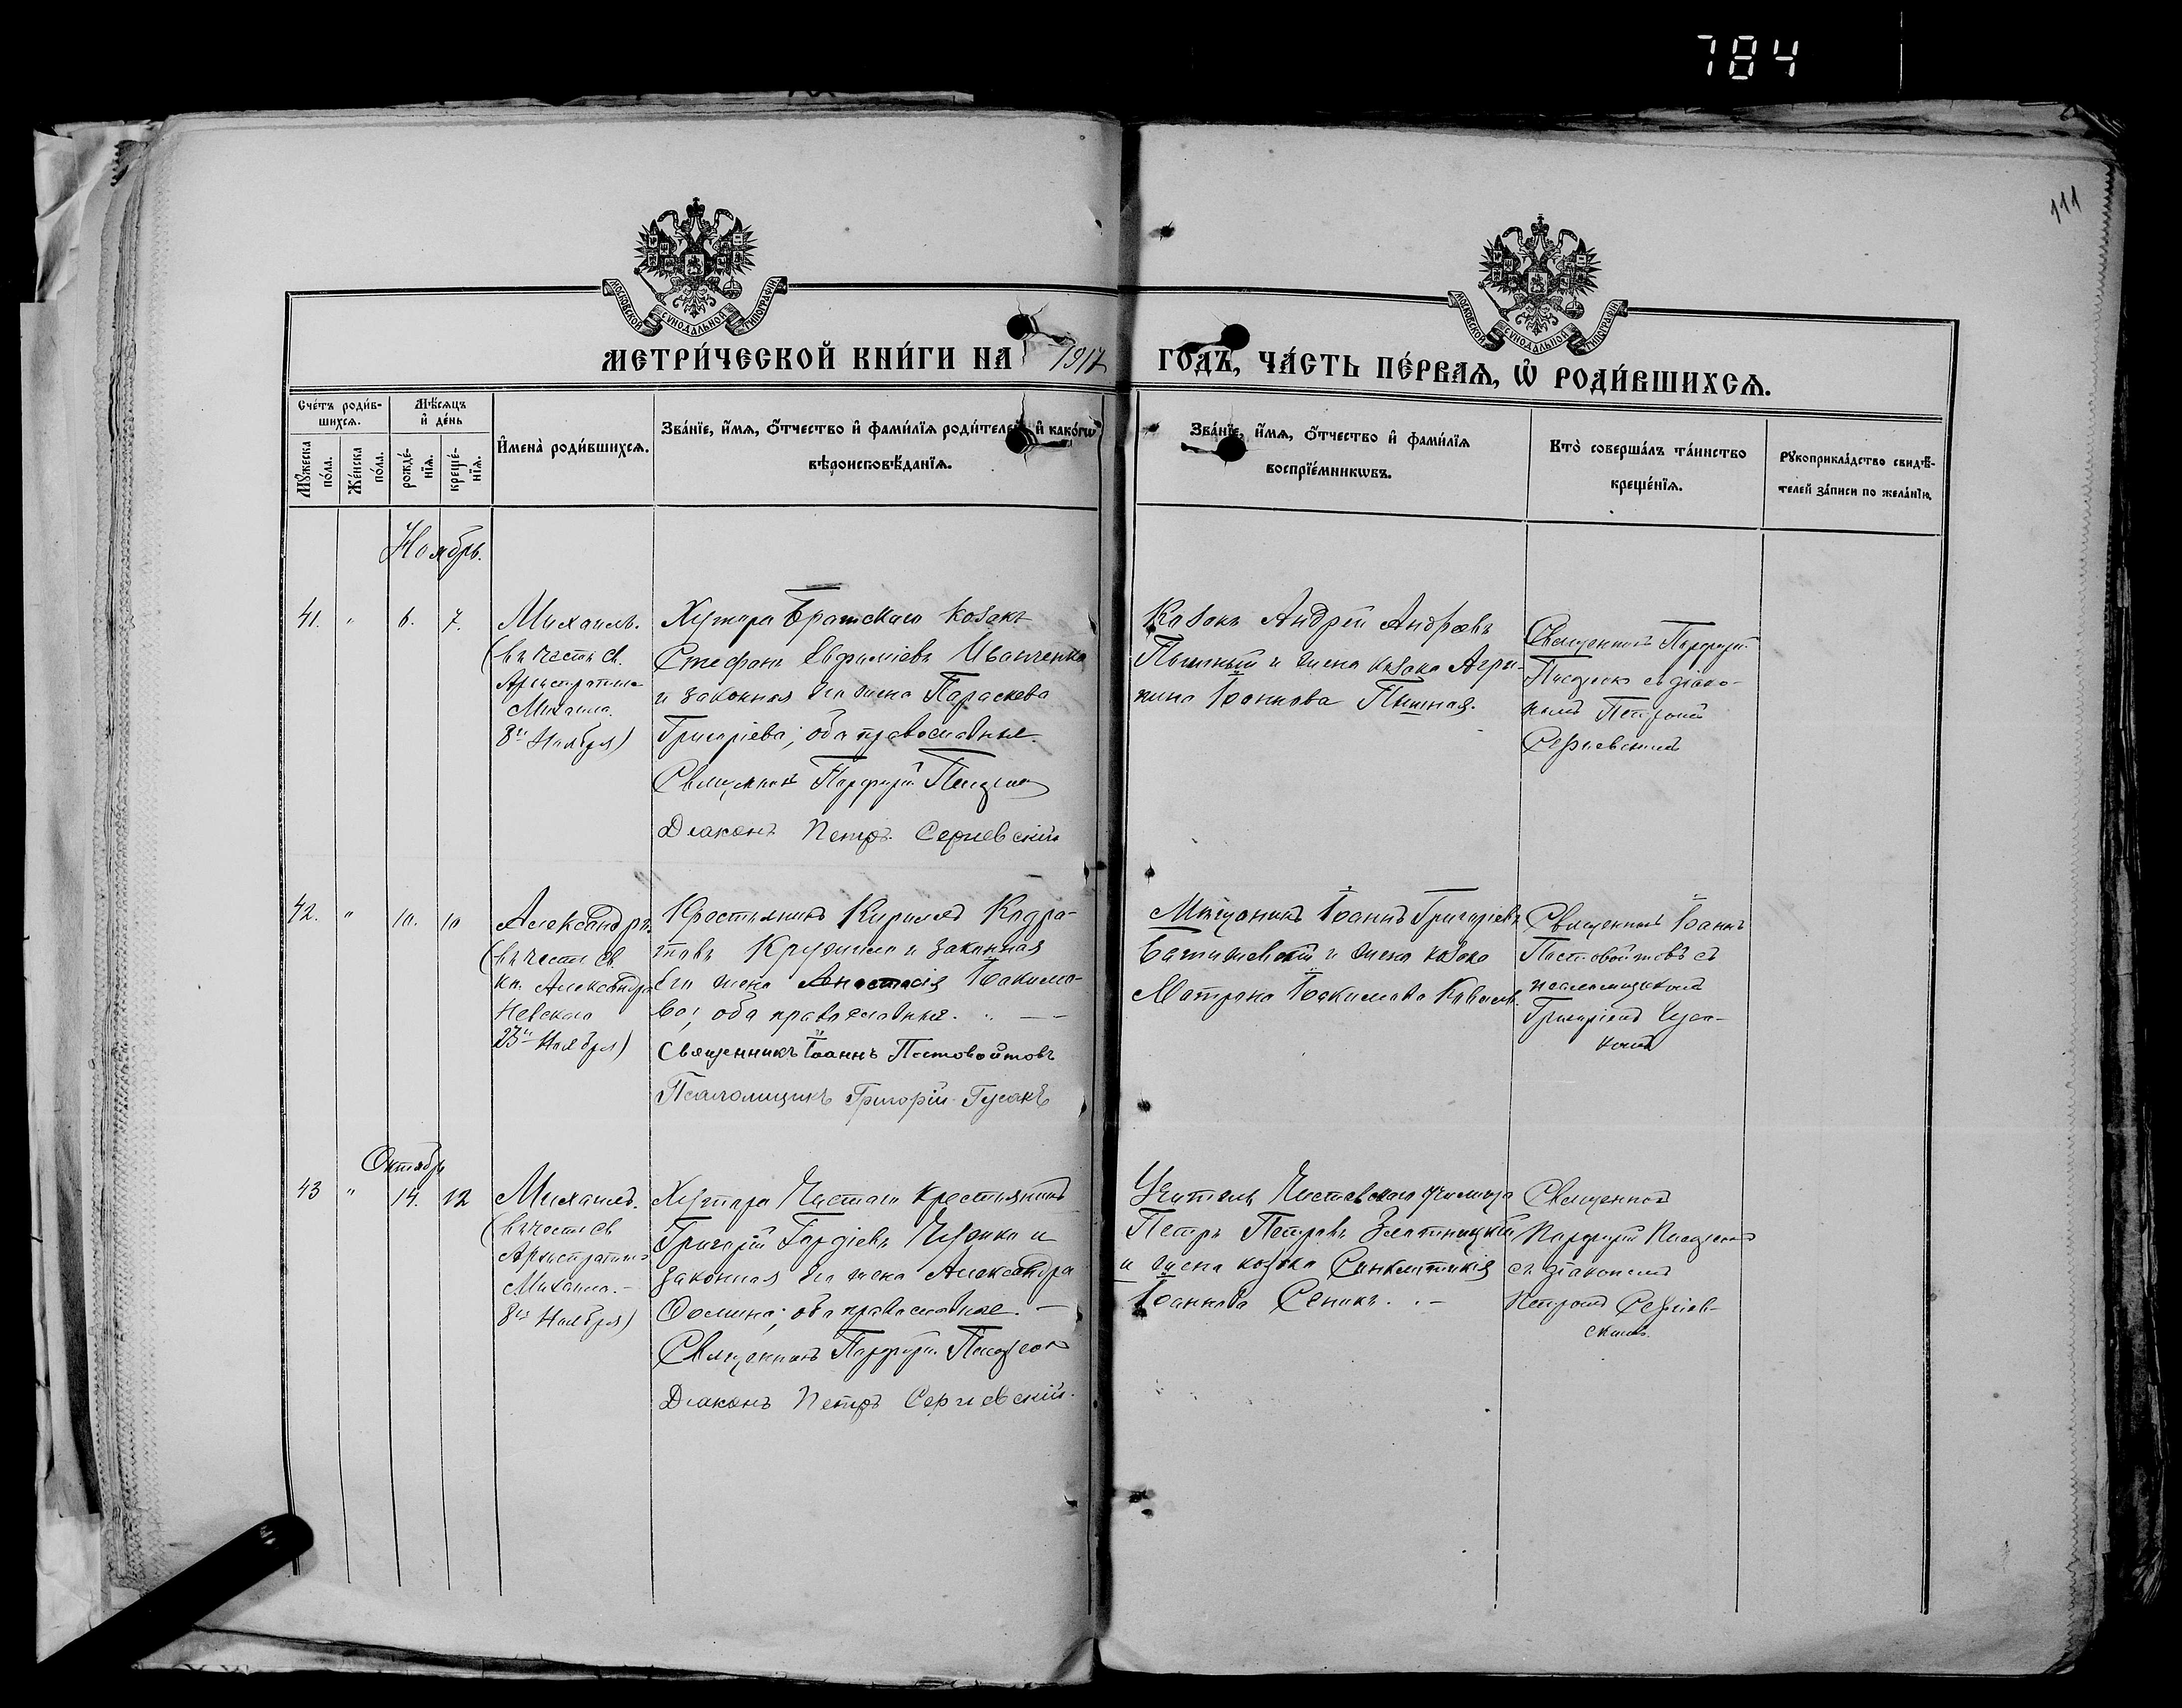 784
111
МОСКОВСКОЙ СУНОДАЛЬНОЙ ТИПОГРАФІИ
МОСКОВСКОЙ СУНОДАЛЬНОЙ ТИПОГРАФІИ
МЕТРИ́ЧЕСКОЙ КНИ́ГИ НА 1917 ГОДЪ, ЧА́СТЬ ПЕ́РВАЯ, Ѡ РОДИ́ВШИХСЯ.
Сче́тъ роди́в-
шихся.
Мѣ́сяцъ
и де́нь
Му́жеска
по́ла.
Же́нска
по́ла.
рожде́-
нїя.
креще́-
нїя.
Имена̀ роди́вшихся.
Зва́нїе, и́мя, о́тчество и фами́лїя роди́телей, и како́гѡ
вѣроисповѣ́данїя.
Зва́нїе, и́мя, о́тчество и фами́лїя
воспрїе́мникѡвъ.
Кто̀ соверша́лъ та́инство
креще́нїя.
Рукоприкла́дство свидѣ́-
телей за́писи по жела́нїю.
Ноябрь.
41. " 6. 7.
Михаилъ.
(въ честь Св.
Архистратига
Михаила.
8го Ноября)
Хутора Братскаго козакъ
Стефанъ Евфиміевъ Иванченко
и законная его жена Параскева
Григоріева; оба православные.
Священникъ Парфирій
Діаконъ Петръ Сергіевскій
Козакъ Андрей Андреевъ
Пышный и жена козака Агри-
пина Іоаннова Пышная.
Священникъ Парфирій
съ діако-
номъ Петромъ
Сергіевскимъ
42. " 10. 10
Александръ.
(въ честь Св.
Кн. Александра
Невскаго
23го Ноября)
Крестьянинъ Кириллъ Кодра-
товъ и законная
его жена Анастасія Іоакимо-
ва; оба православные.
Священникъ Іоаннъ Постовойтовъ
Псаломщикъ Григорій Гусакъ
Мѣщанинъ Іоаннъ Григоріевъ
и жена козака
Матрона Іоакимова
Священникъ Іоаннъ
Постовойтовъ съ
псаломщикомъ
Григоріемъ Гуса-
комъ
Октябрь
43 " 14. 12
Михаилъ.
(въ честь Св
Архистратига
Михаила.
8го Ноября)
Хутора Чистаго крестьянинъ
Григорій Гордіевъ и
законная его жена Александра
Фомина; оба православные.
Священникъ Парфирій
Діаконъ Петръ Сергіевскій.
Учитель Чистовскаго училища
Петръ Петровъ Златницкій
и жена козака Синклитикія
Іоаннова Сеникъ.
Священникъ
Парфирій
съ діакономъ
Петромъ Сергіев-
скимъ.